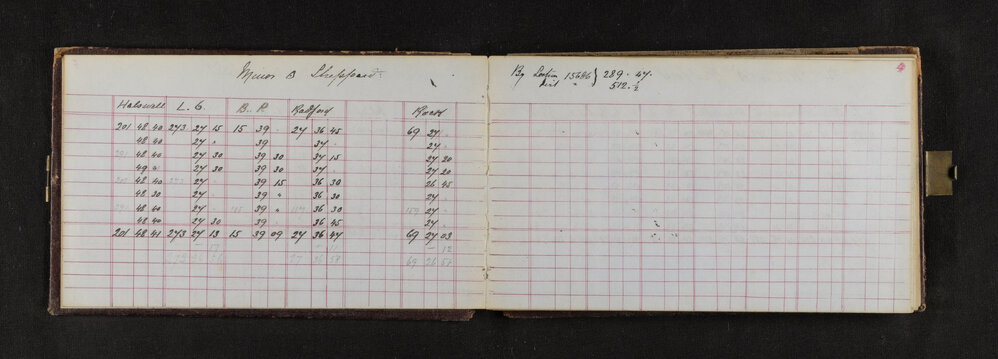 Minor B Sheppard
Halswell L. C. B. R. Radford Rock
201 48 40 273 27 15 15 39 · 27 36 45 69 27 ·
48 40 27 " 39 37 · 27 ·
48 40 27 30 39 30 37 15 27 20
49 " 27 30 39 30 37 · 27 20
48 40 27 39 15 36 30 26 45
48 30 27 39 " 36 30 27
48 40 27 39 " 36 30 27 ·
48 40 27 30 39 36 45 27 ·
201 48 41 273 27 13 15 39 09 27 36 47 69 27 03
– 12
69 26 51
By Section 15686 } 289. 47.
dist " 512. ½